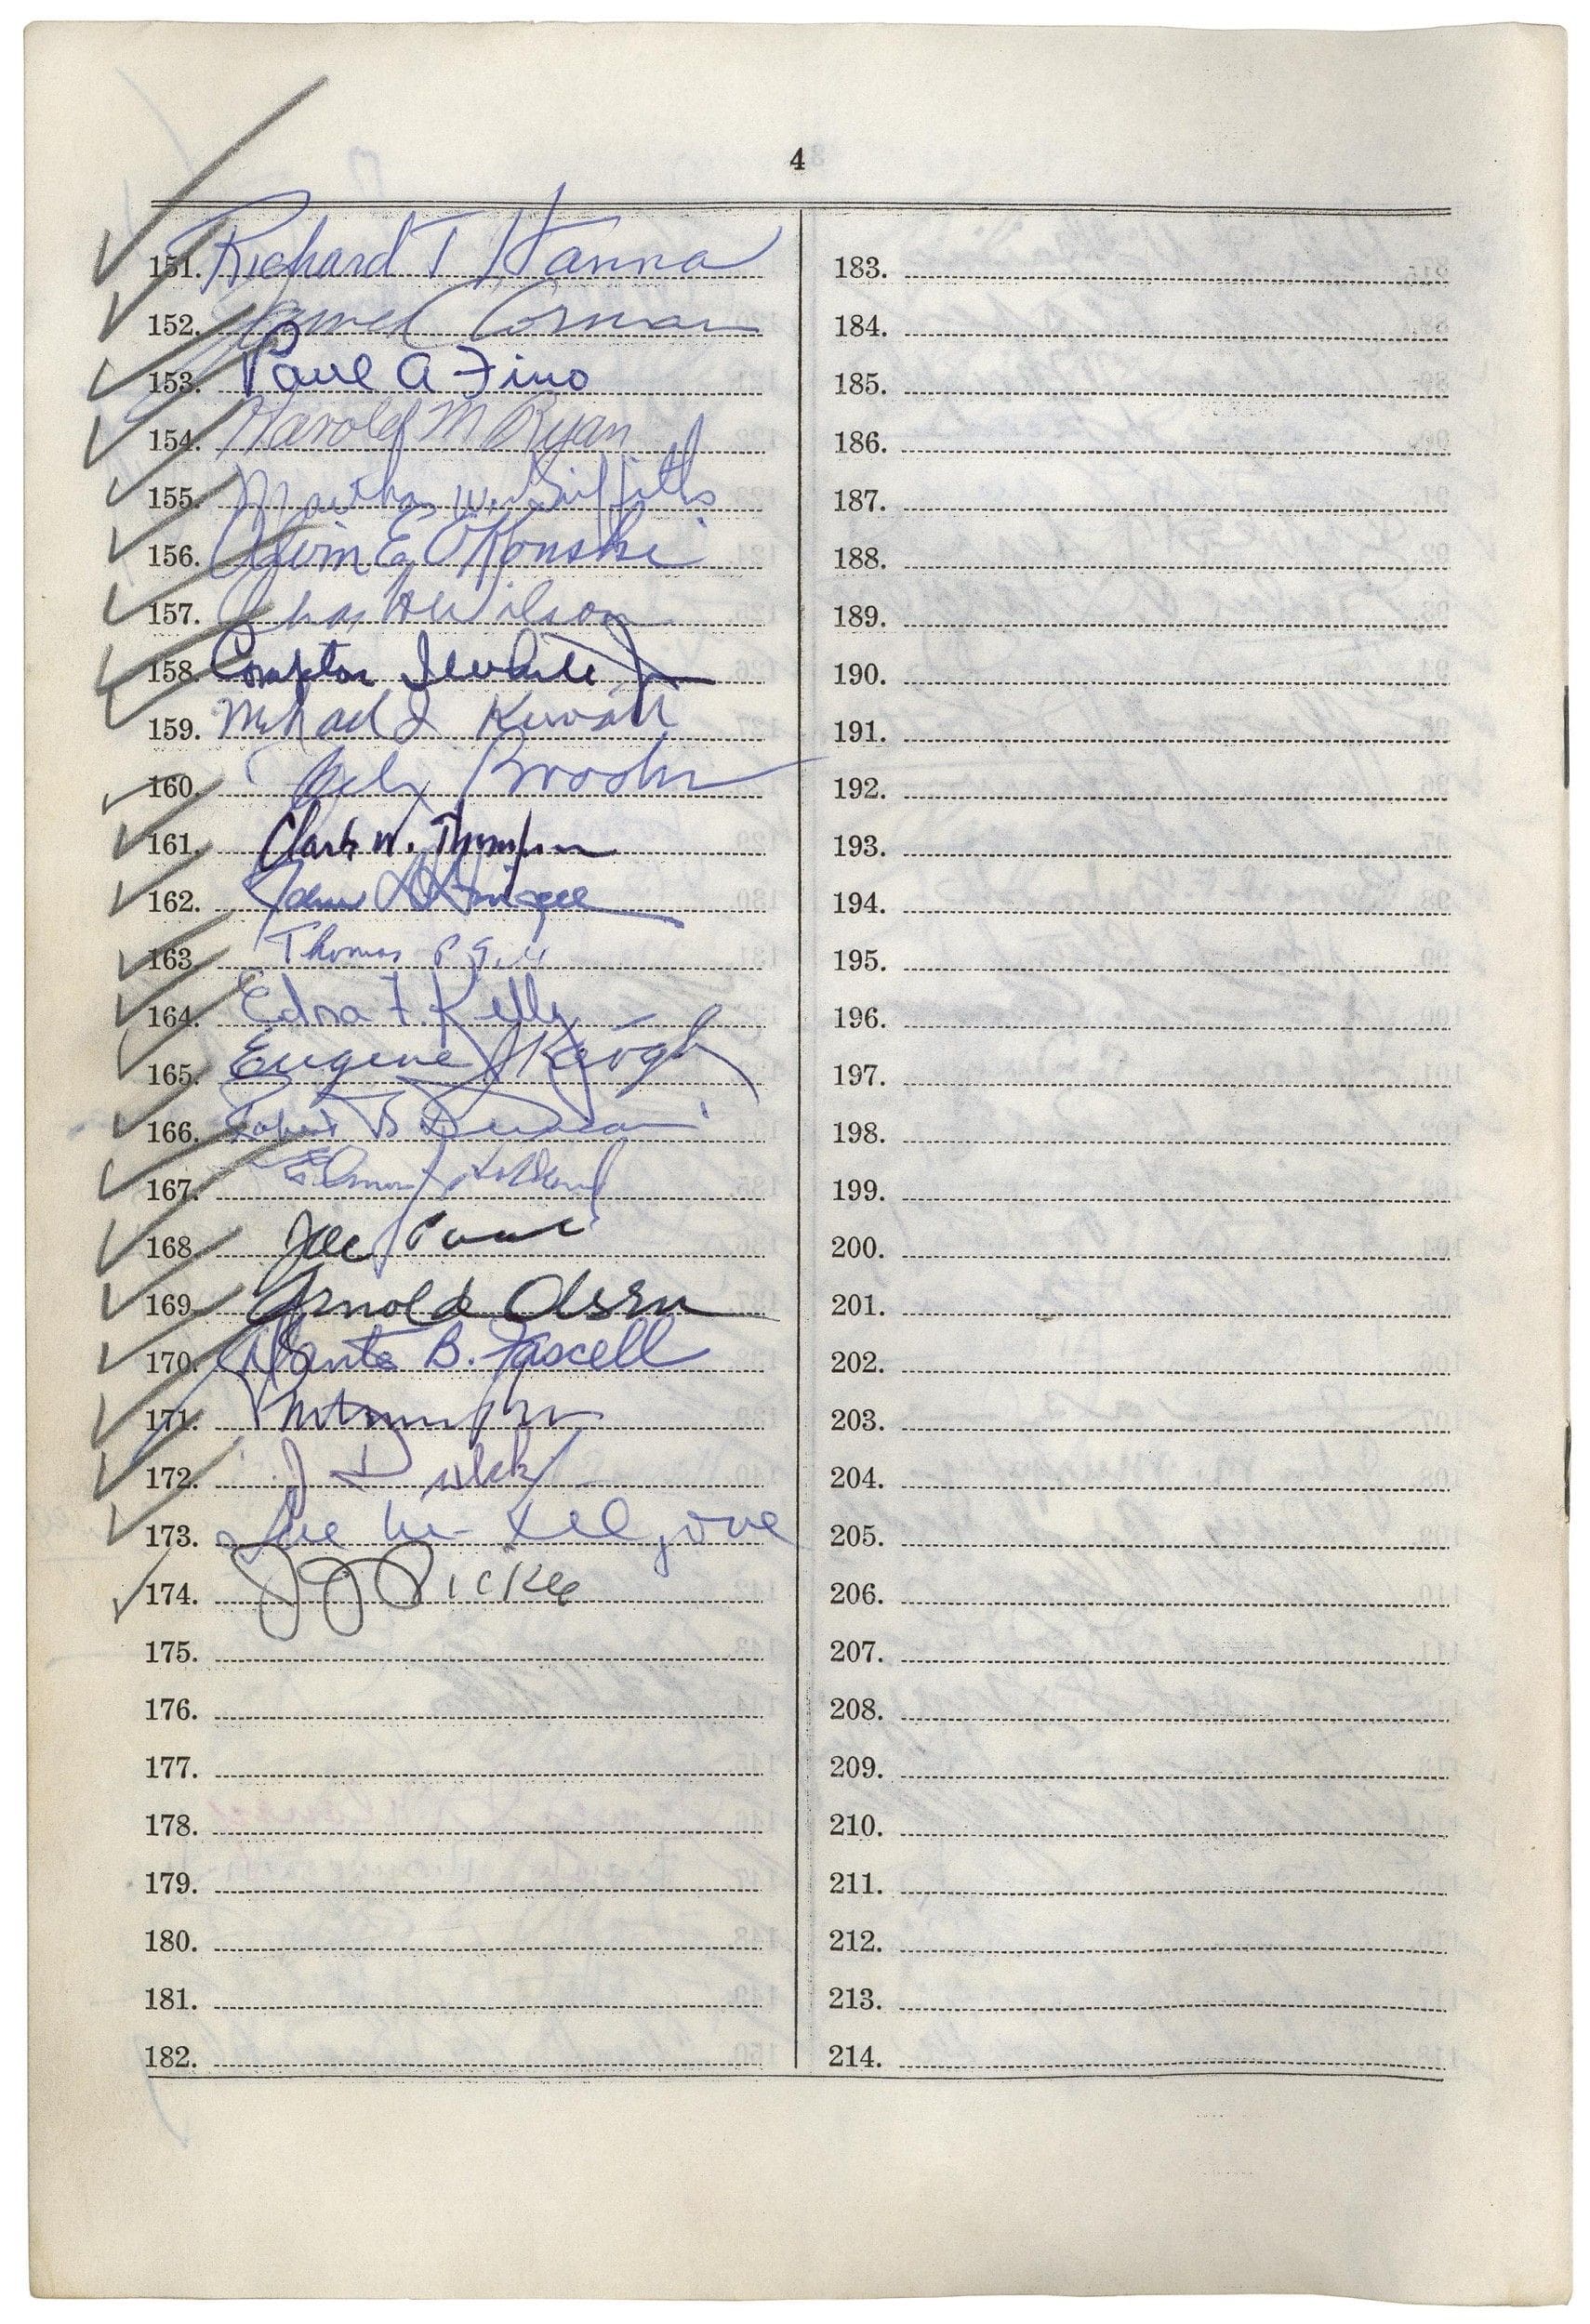 4
151. Richard T Hanna
152. James C Corman
153. Paul A Fino
154. Harold M Ryan
155. Martha W. Griffiths
156. Alvin E. O'Konski
157. Chas H Wilson
158. Compton I White Jr
159. Michael J Kirwan
160. Jack Brooks
161. Clark W. Thompson
162. John D Dingell
163. Thomas P Gill
164. Edna F. Kelly
165. Eugene J Keogh
166. Robert B Duncan
167. Elmer J Holland
168. Joe
169. Arnold Olsen
170. Dante B. Fascell
171.
172. J
173.
174. JJ Pickle
175.
176.
177.
178.
179.
180.
181.
182.
183.
184.
185.
186.
187.
188.
189.
190.
191.
192.
193.
194.
195.
196.
197.
198.
199.
200.
201.
202.
203.
204.
205.
206.
207.
208.
209.
210.
211.
212.
213.
214.